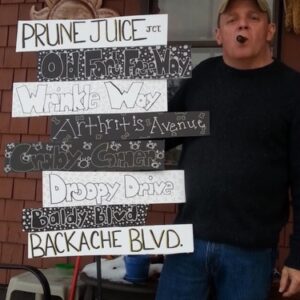 PRUNE JUICE JCT.
Old Fart Fwy
Wrinkle Way
Arthritis Avenue
Crabby Corner
Droopy Drive
Baldy Blvd
BACKACHE BLVD.